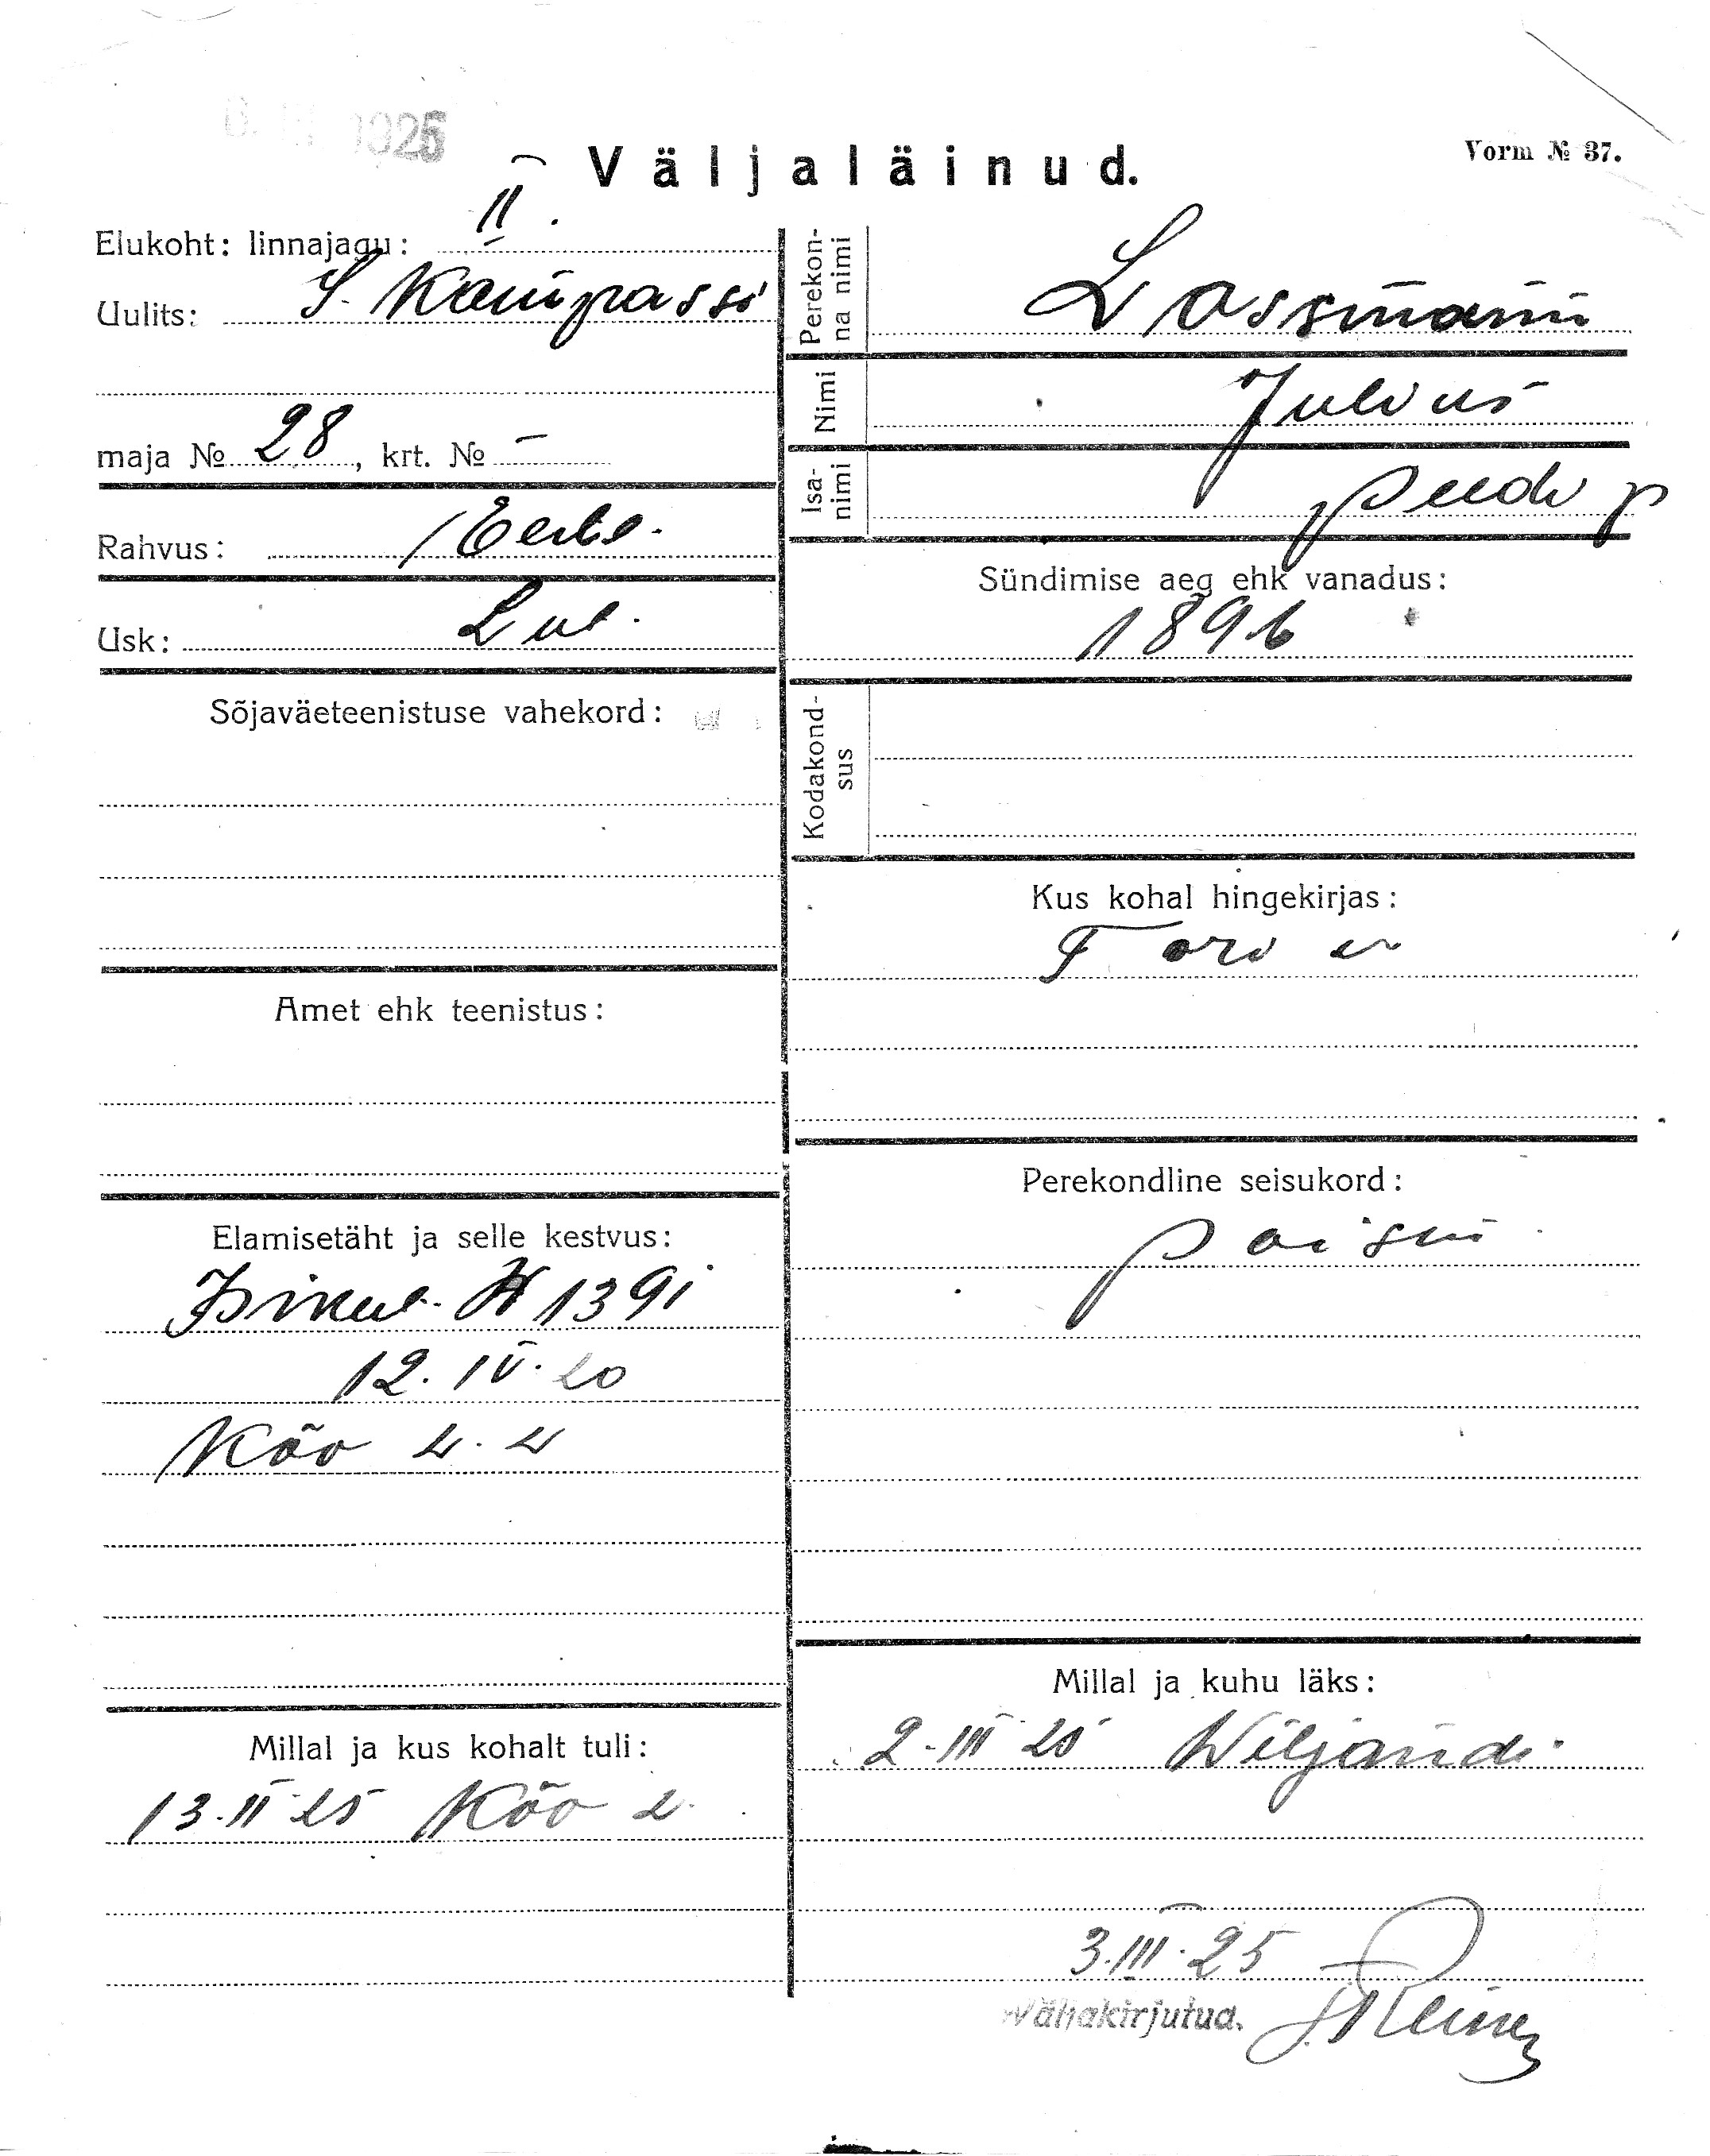 1925
Väljaläinud.
Vorm № 37.
Elukoht: linnajagu: II.
Uulits: S. Kompassi
maja № 28, krt. № —
Rahvus: Eesti.
Usk: Lut.
Sõjaväeteenistuse vahekord:
Amet ehk teenistus:
Elamisetäht ja selle kestvus:
Isikut. № 1391
12. IV. 20
Kõo v. v
Millal ja kus kohalt tuli:
13. II 25 Kõo v.
Perekon-
na nimi
Lossmann
Nimi
Julius
Isa-
nimi
Peedi p
Sündimise aeg ehk vanadus:
1896
Kodakond-
sus
Kus kohal hingekirjas:
Kus kohal hingekirjas:
Perekondline seisukord:
poism
Millal ja kuhu läks:
2. III 25 Wiljandi.
3. III. 25
Väljakirjutud.